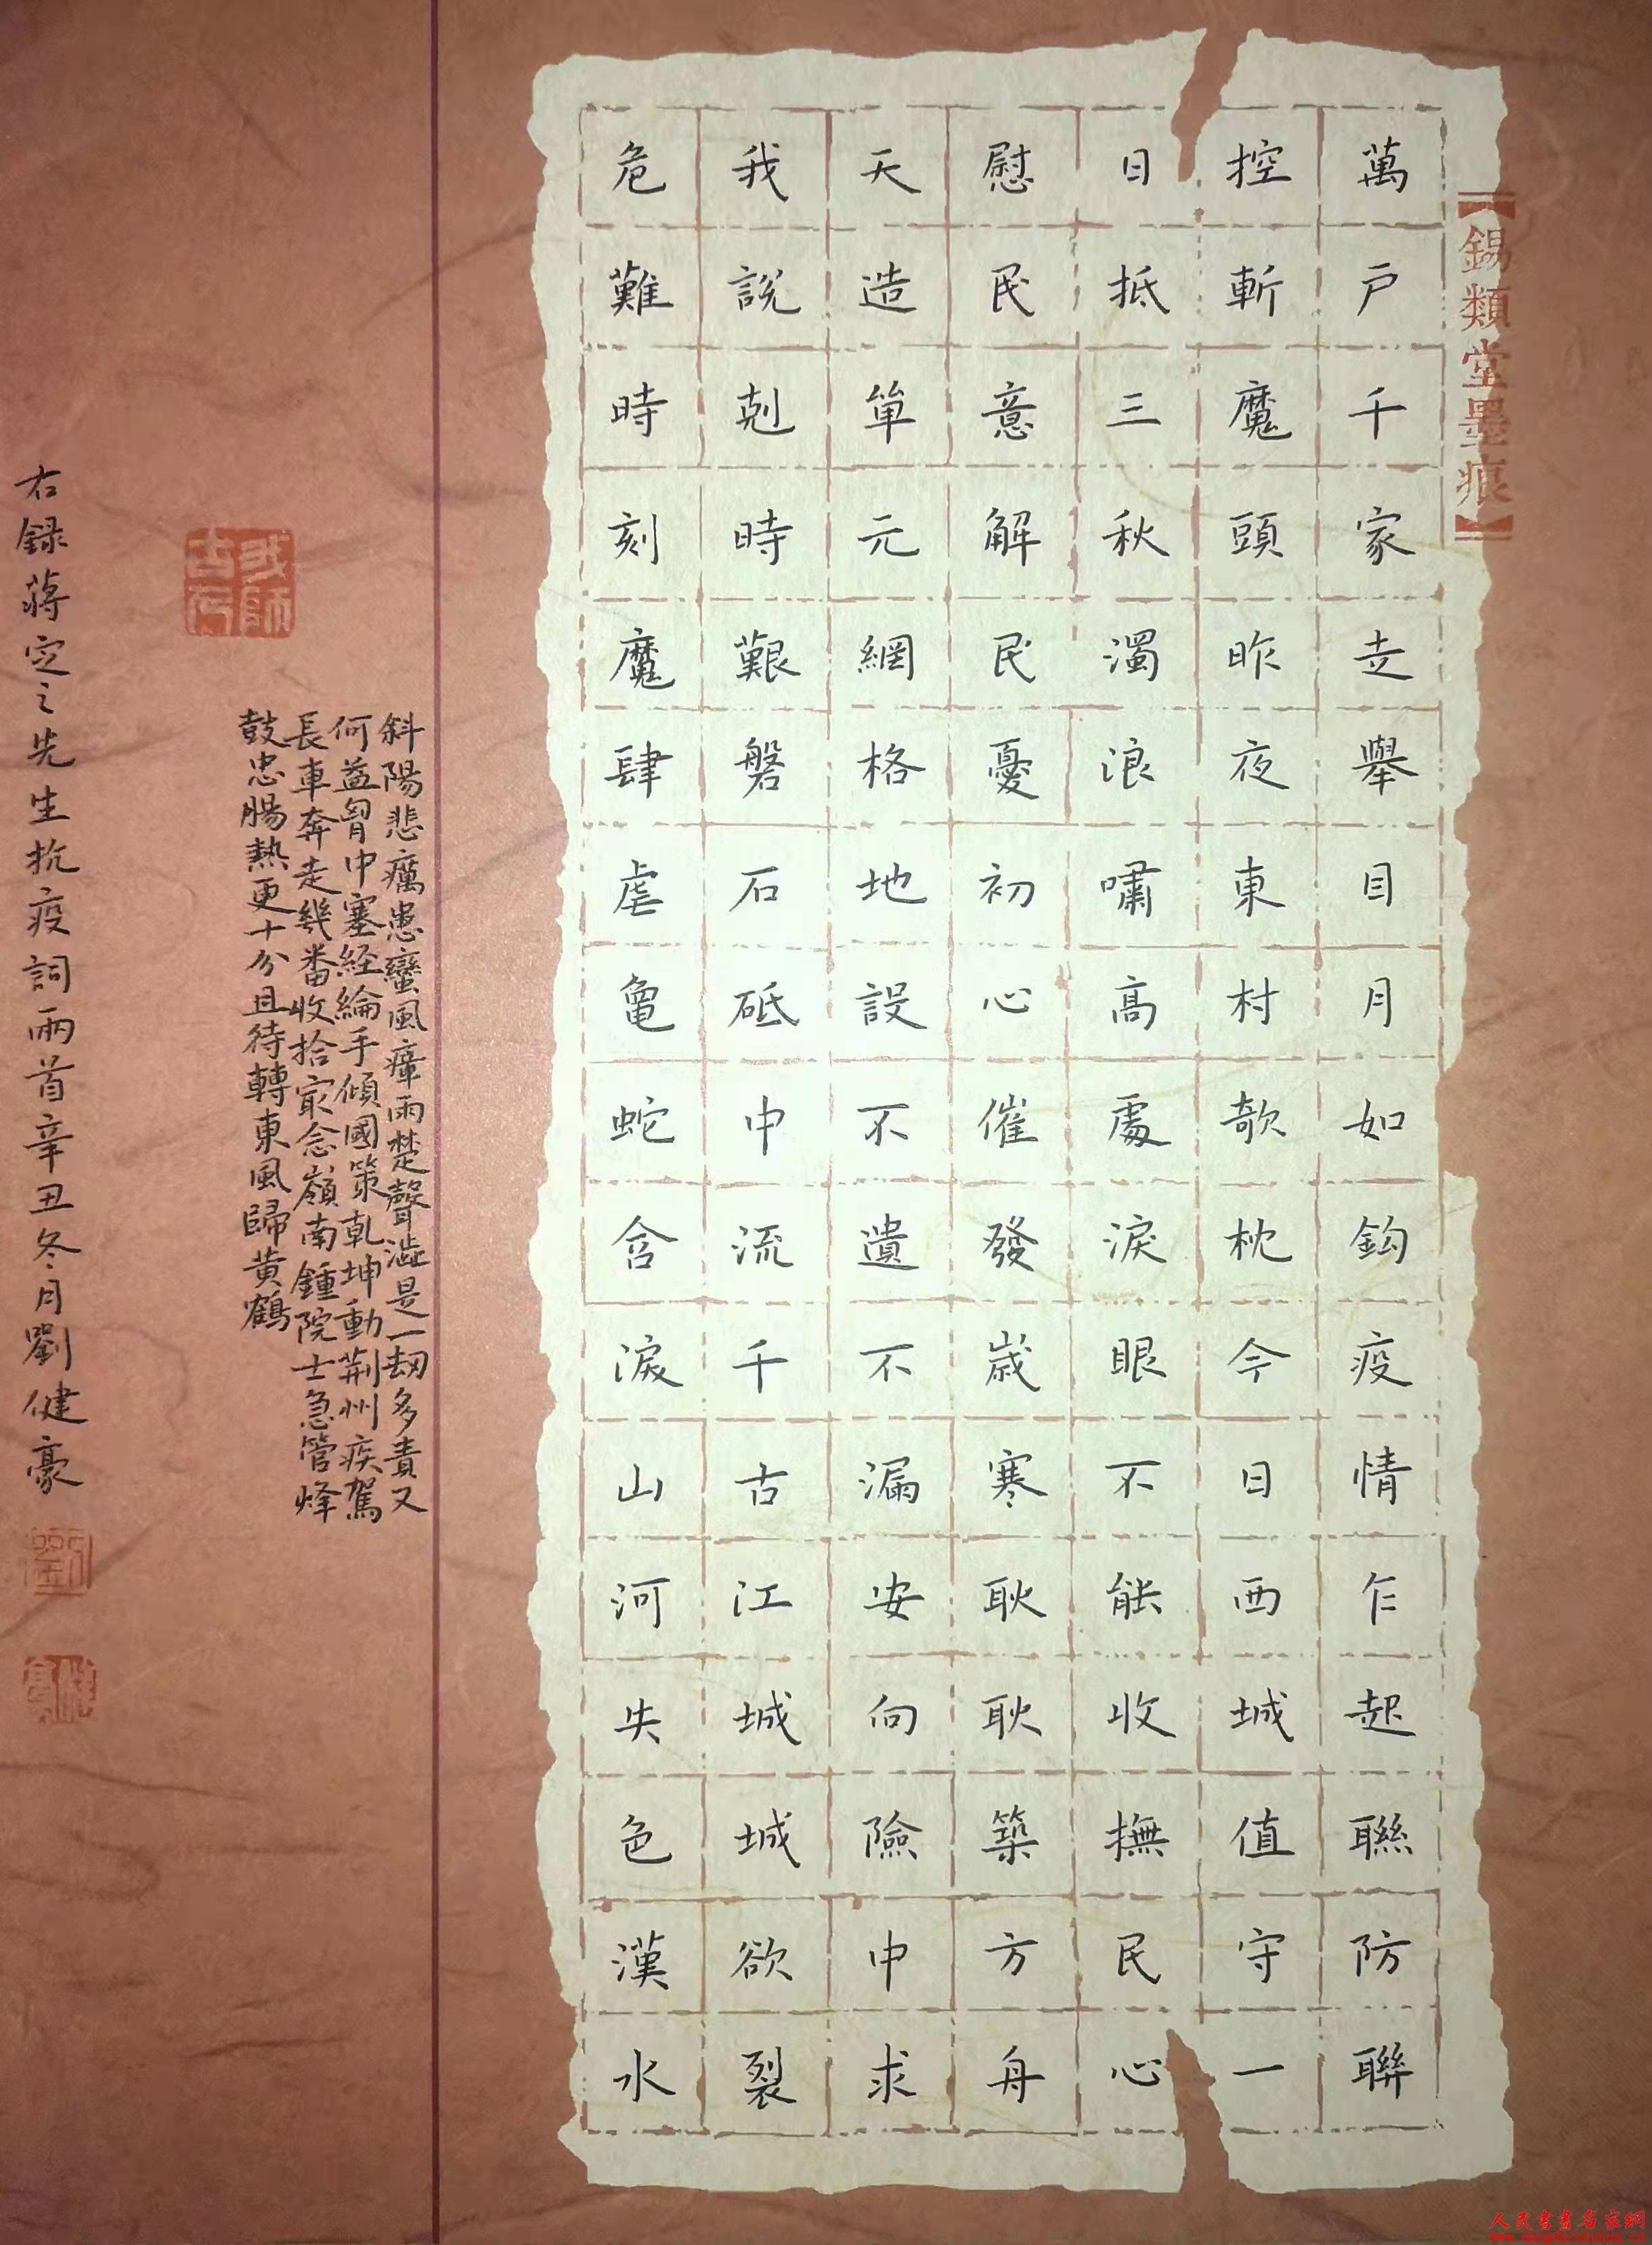 【錫類堂墨痕】
萬戶千家走舉目月如鈎疫情乍起聯防聯
控斬魔頭昨夜東村欹枕今日西城值守一
日抵三秋濁浪嘯高處淚眼不能收撫民心
慰民意解民憂初心催發歲寒耿耿築方舟
天造單元網格地設不遺不漏安向險中求
我說剋時艱磐石砥中流千古江城城欲裂
危難時刻魔肆虐龜蛇含淚山河失色漢水
斜陽悲癘患蠻風瘴雨楚聲澁是一劫多責又
何益胷中塞經綸手傾國策乾坤動荆州疾駕
長車奔走幾番收拾最念嶺南鍾院士急管烽
鼓忠腸熱更十分且待轉東風歸黄鶴
右録蔣定之先生抗疫詞兩首辛丑冬月劉健豪
人民書畫名家網